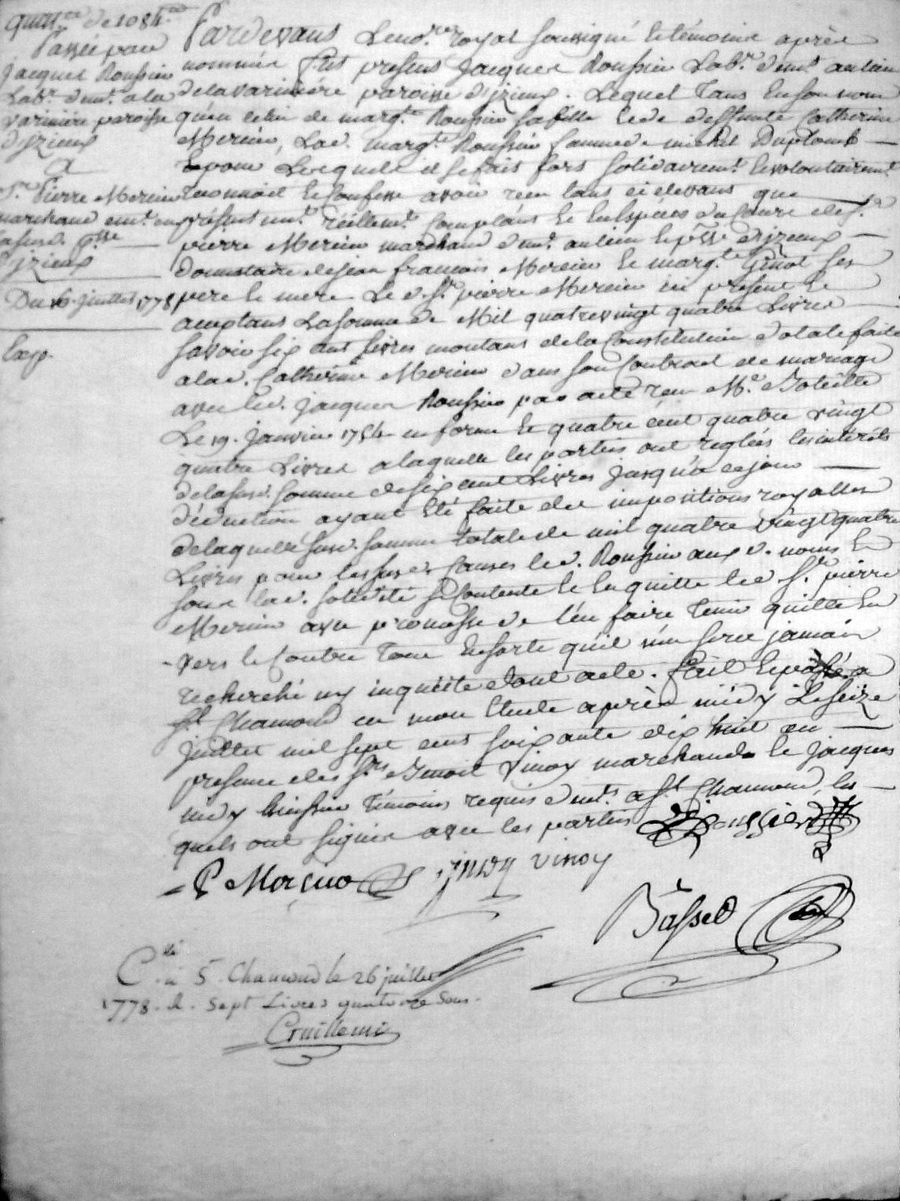 quitt.ce de 1084 ††
Passée par
Jacques Roussier
Lab.r dem.t a la
varinière paroisse
d'Izieux
a
S.r Pierre Morein
marchand em.t en
lasusd. p.sse
d'Izieux
Du 16 juillet 1778
Pardevant Lenore. royal soussigné & témoins après
nommés fut présent Jacques Roussier Lab.r dem.t au lieu
de la varinière paroisse d'Izieux. Lequel tant en son nom
qu'en celui de marg.te Roussier sa fille & de deffunte Catherine
Morein, Lad. marg.te Roussier femme de michel Duplomb
pour Lesquels il se fait fort solidairem.t & volontairem.t
reconnoit & confesse avoir reçu tant ci devant que
présentem.t réellem.t comptant & en Espèces du Cours de S.r
pierre Morein marchand dem.t au lieu & p.sse d'Izieux
donnataire de jean françois Morein & marg.te Ginot ses
pere & mere Le d. S.r pierre Morein ici présent &
acceptant La somme de Mil quatrevingt quatre Livres
savoir six cent livres montant de la Constitution dotale faite
a lad. Catherine Morein dans son Contract de mariage
avec led. jacques Roussier par acte reçu M.e
Le 19. janvier 1754 en forme & quatre cent quatre vingt
quatre Livres a laquelle les parties ont reglés les intérêts
de la susd. somme de six cent Livres jusqu'a ce jour
déduction ayant été faite des impositions royalles
de laquelle susd. somme totale de mil quatre vingt quatre
Livres pour les susd. causes led. Roussier aux d. noms &
sous lad. solidité se contente & en quitte led. S.r pierre
Morein avec promesse de l'en faire tenir quitte en
vers & contre tous ensorte qu'il n'en sera jamais
recherché ny inquiété dont acte. fait & passé a
S.t Chamond en mon Etude après midy Le seize
juillet mil sept cent soixante dix huit en
présence des S.rs Benoit Vinoy marchand & jacques
témoins requis dem.t a S.t Chamond, les
quels ont signés avec les parties Roussier
P Moreno vinoy
Basset
C.llé a S. Chamond le 26 juillet
1778. R. Sept Livres quatorze Sous.